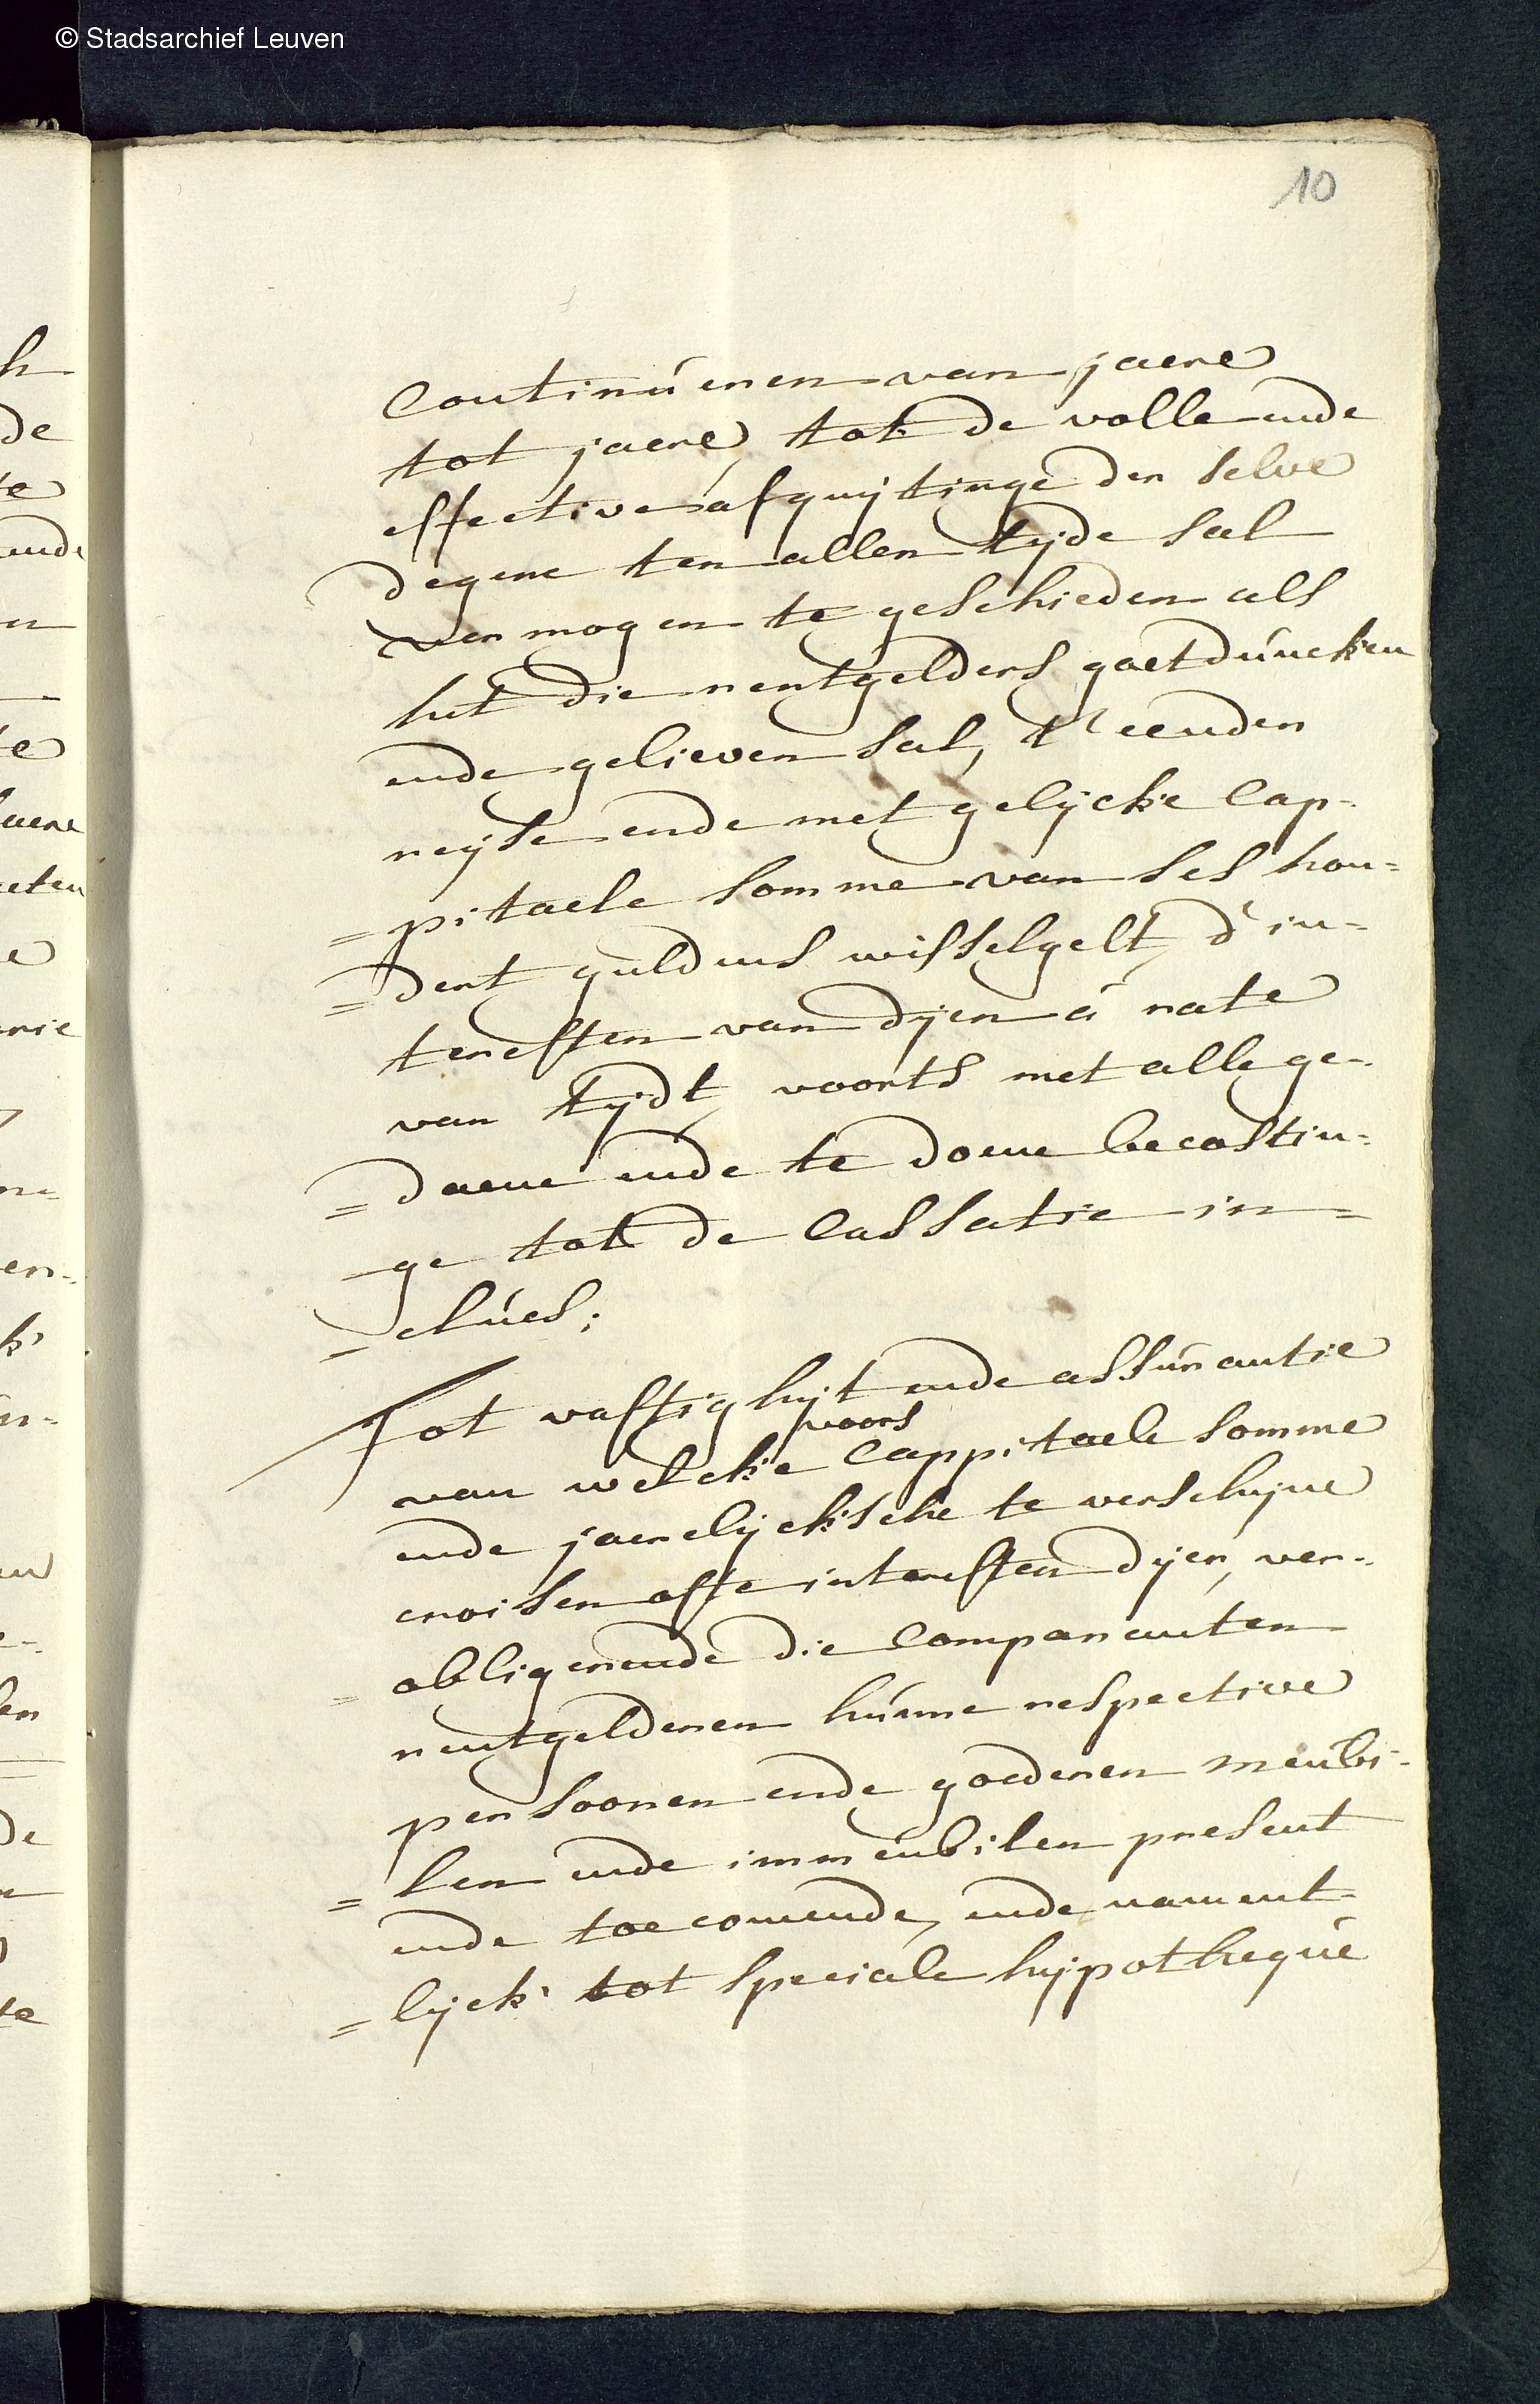 © Stadsarchief Leuven
10
Continúeren van jaere
tot jaere, tot de volle ende
effective afquytinge der selve
degene ten allen tyde sal
vermogen te geschieden als
hut die rentgelders goetdúncken
ende gelieven sal, t'eender
reijse ende met gelycke Cap-
=pitaele somme van ses hon=
=dert guldens wisselgelt, d'in-
teresten van dijen á rate
van tydt, voorts met alle ge-
=daene ende te doene becostin=
ge tot de Cassatie in=
-clúes;
Tot vastighyt ende assúrantie
voors
van welcke Cappitaele somme
ende jaerelycksche te verschyne
croisen offe interesten dijer, ver-
=obligerende die Comparanten
rentgelderen húnne respective
persoonen ende goederen meúbi-
=len ende immeúbilen present
ende toecomende, ende nament-
=lyck tot speciale hypotheqúe